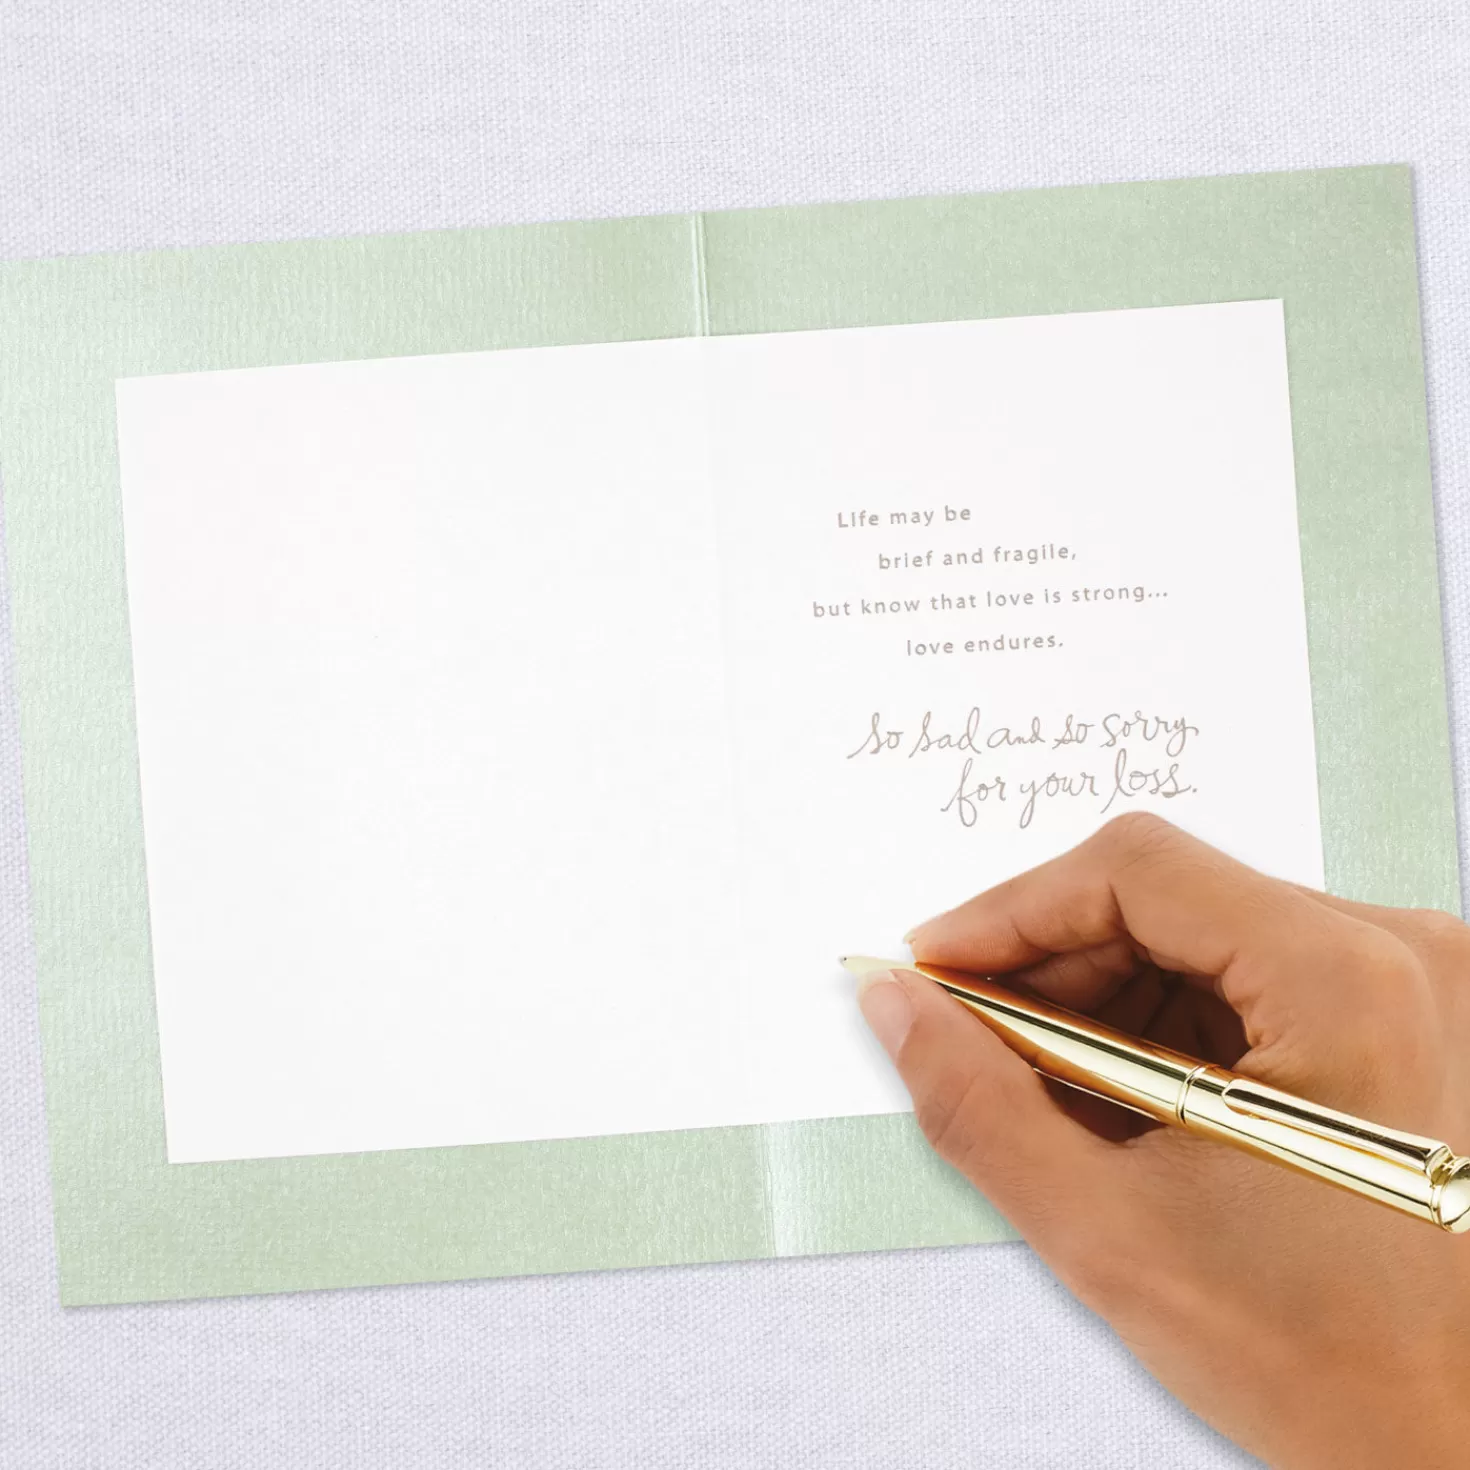 Life may be
brief and fragile,
but know that love is strong...
love endures.
so sad and so sorry
for your loss.